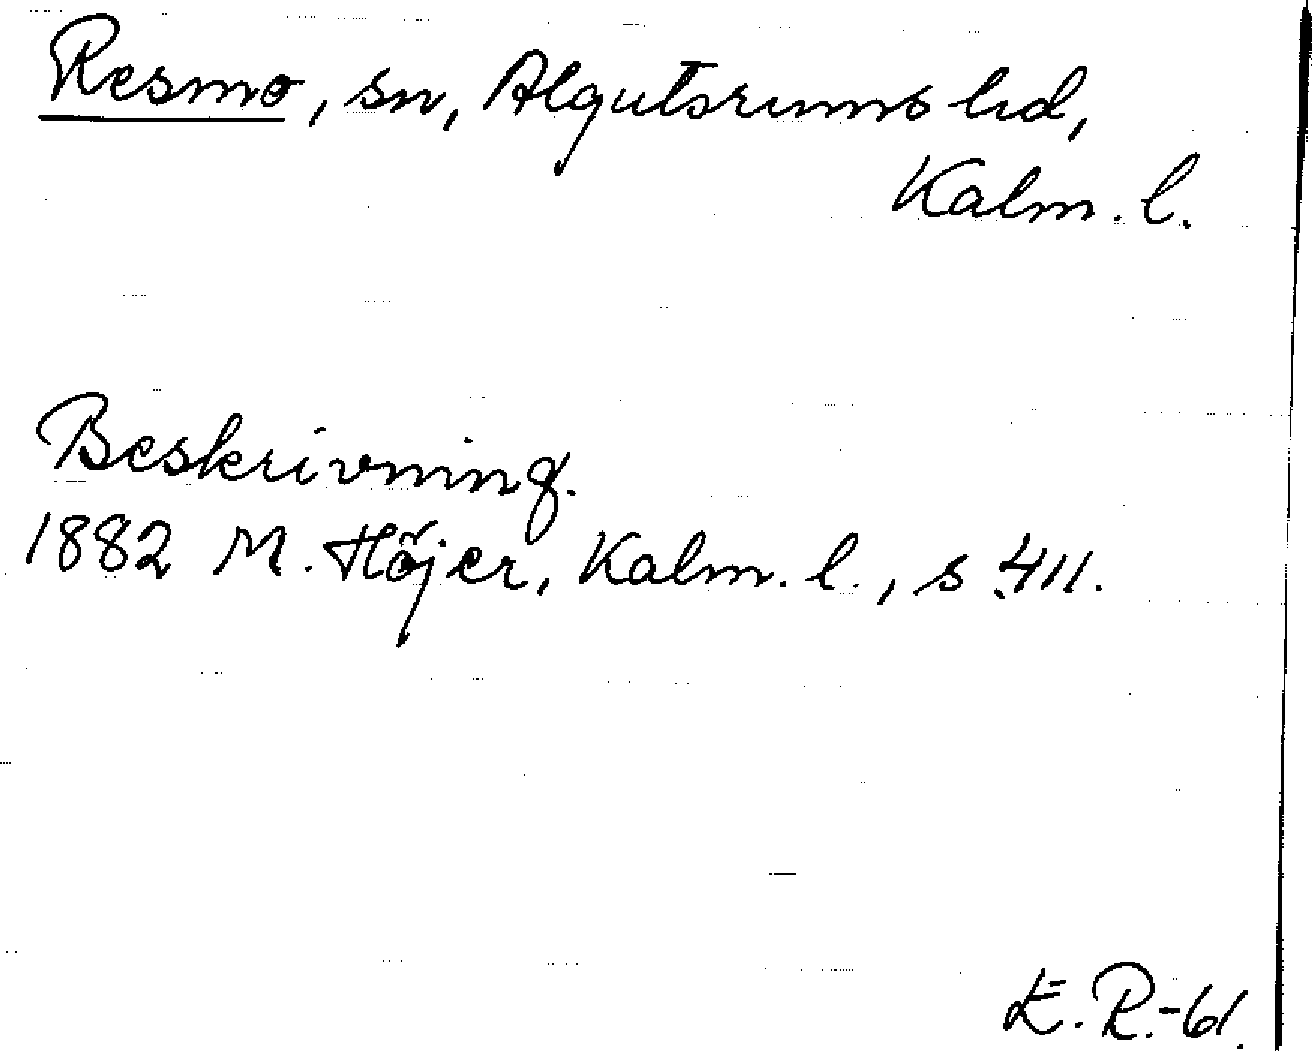 Resmo, sn, Algutsrums hd,
Kalm. l.
Beskrivning.
1882 M. Höjer, Kalm. l., s. 411.
E. R.-61.